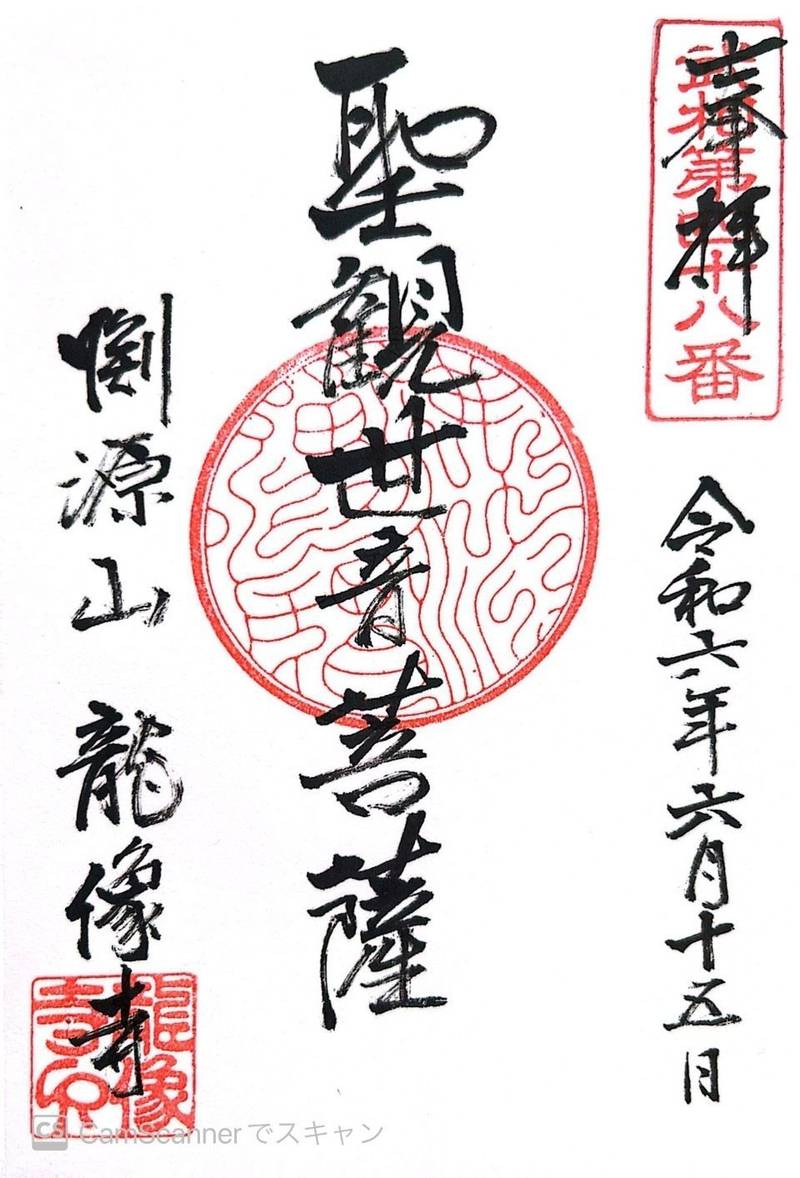 奉拝
武相第四十八番
令和六年六月十五日
聖観世音菩薩
渕源山 龍像寺
龍像寺印
CS CamScanner でスキャン